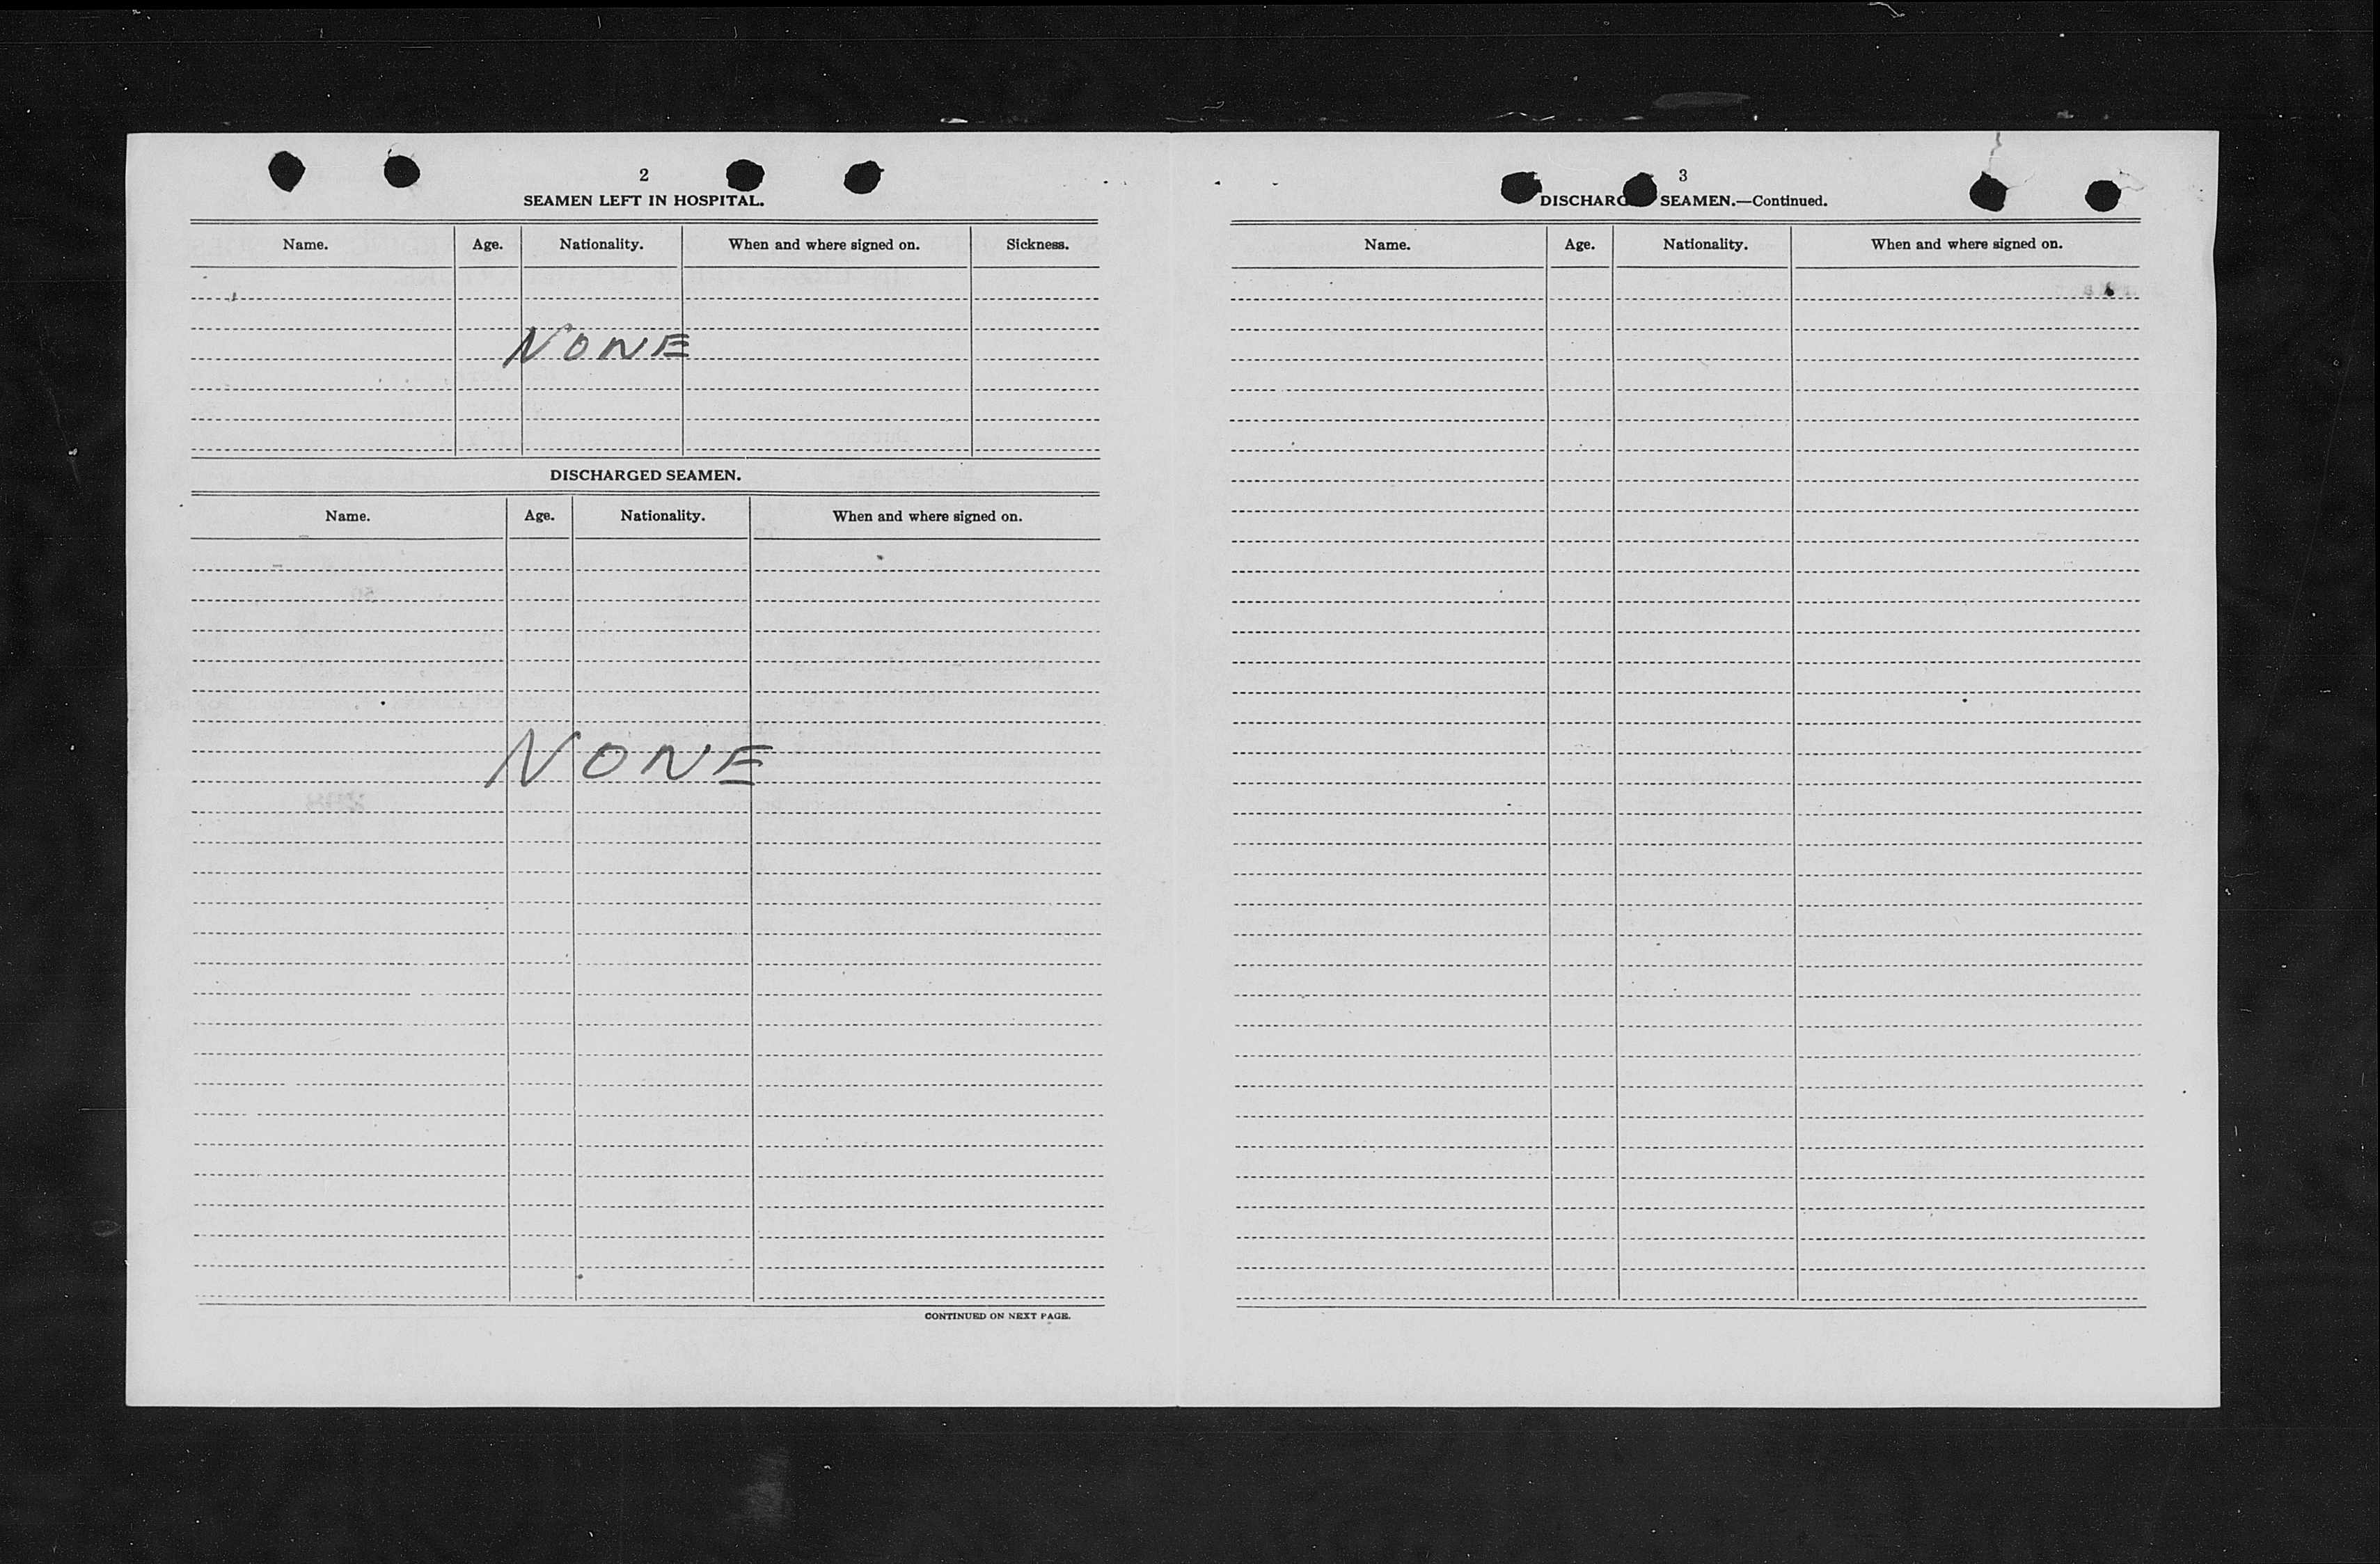 2
SEAMEN LEFT IN HOSPITAL.
Name. Age. Nationality. When and where signed on. Sickness.
NONE
DISCHARGED SEAMEN.
Name. Age. Nationality. When and where signed on.
NONE
CONTINUED ON NEXT PAGE.
3
DISCHARG SEAMEN.—Continued.
Name. Age. Nationality. When and where signed on.